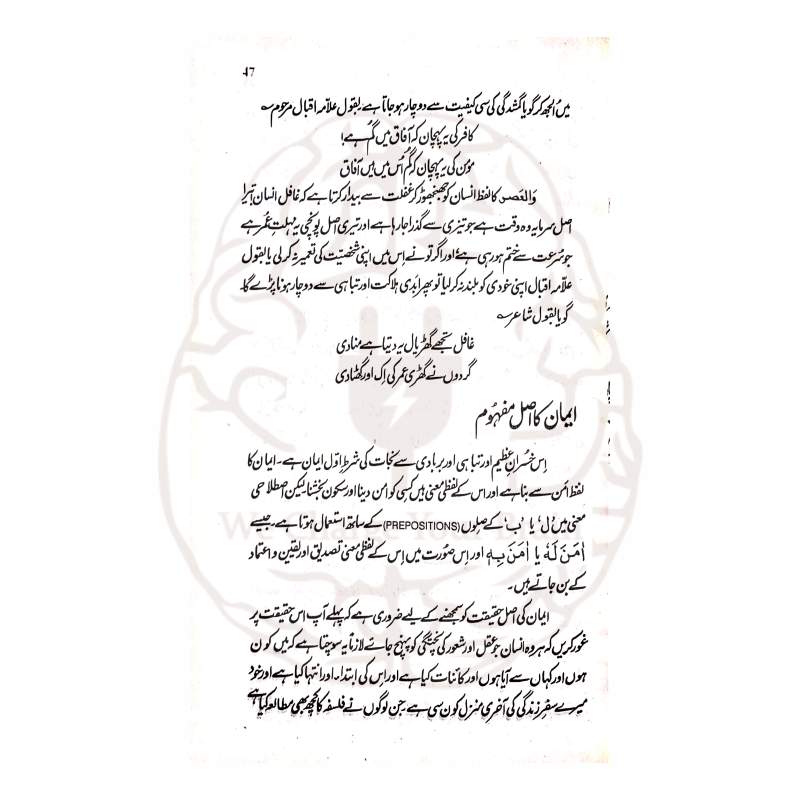 47
میں اُلجھ کر گویا گمشدگی کی سی کیفیت سے دوچار ہو جاتا ہے بقول علامہ اقبال مرحوم ؎
کافر کی یہ پہچان کہ آفاق میں گم ہے!
مؤمن کی یہ پہچان کہ گُم اُس میں ہیں آفاق
وَالعَصر کا لفظ انسان کو جھنجھوڑ کر غفلت سے بیدار کرتا ہے کہ غافل انسان! تیرا
اصل سرمایہ وہ وقت ہے جو تیزی سے گذرا جا رہا ہے اور تیری اصل پونجی یہ مہلتِ عُمر ہے
جو سُرعت سے ختم ہو رہی ہے! اور اگر تو نے اِس میں اپنی شخصیّت کی تعمیر نہ کر لی یا بقول
علّامہ اقبال اپنی خودی کو بلند نہ کر لیا تو پھر ابدی ہلاکت اور تباہی سے دوچار ہونا پڑے گا۔
گویا بقول شاعر ؎
غافل تجھے گھڑیال یہ دیتا ہے منادی
گردوں نے گھڑی عمر کی اِک اور گھٹا دی
ایمان کا اصل مفہُوم
اِس خُسرانِ عظیم اور تباہی اور بربادی سے نجات کی شرطِ اوّل ایمان ہے۔ ایمان کا
لفظ امن سے بنا ہے اور اس کے لفظی معنی ہیں کسی کو امن دینا اور سکون بخشنا لیکن اصطلاحی
معنی میں 'ل' یا 'ب' کے صِلوں (PREPOSITIONS) کے ساتھ استعمال ہوتا ہے۔ جیسے
اٰمَنَ لَهٗ یا اٰمَنَ بِهٖ اور اس صُورت میں اِس کے لفظی معنی تصدیق اور یقین و اعتماد
کے بن جاتے ہیں۔
ایمان کی اصل حقیقت کو سمجھنے کے لیے ضروری ہے کہ پہلے آپ اس حقیقت پر
غور کریں کہ ہر وہ انسان جو عقل اور شعور کی پختگی کو پہنچ جائے لازماً یہ سوچتا ہے کہ میں کون
ہوں اور کہاں سے آیا ہوں اور کائنات کیا ہے اور اِس کی ابتدا۔ اور انتہا کیا ہے اور خود
میرے سفرِ زندگی کی آخری منزل کون سی ہے۔ جن لوگوں نے فلسفہ کا کچھ بھی مطالعہ کیا ہے